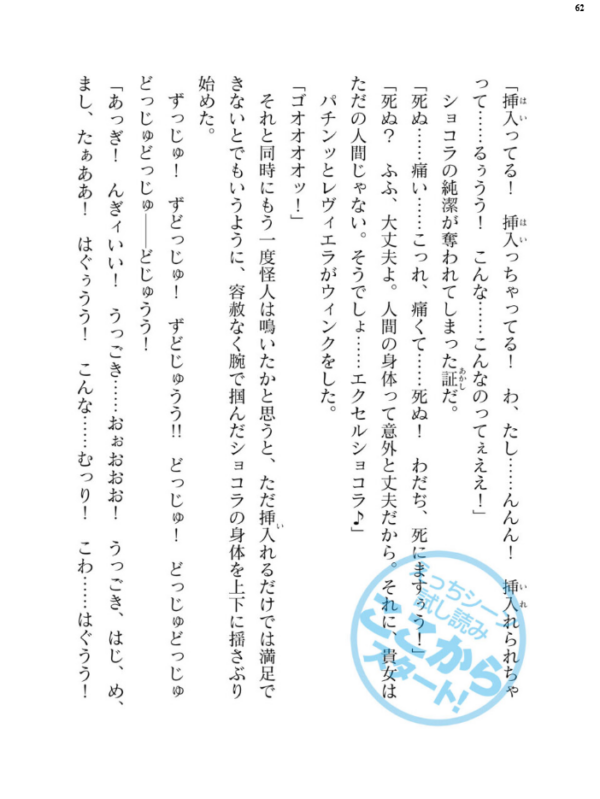 62
「挿入ってる！　挿入っちゃってる！　わ、たし……んんん！　挿入れられちゃ
って……るぅうう！　こんな……こんなのってぇええ！」
ショコラの純潔が奪われてしまった証だ。
「死ぬ……痛い……こっれ、痛くて……死ぬ！　わだぢ、死にますぅう！」
「死ぬ？　ふふ、大丈夫よ。人間の身体って意外と丈夫だから。それに、貴女は
ただの人間じゃない。そうでしょ……エクセルショコラ♪」
パチンッとレヴィエラがウィンクをした。
「ゴオオオオッ！」
それと同時にもう一度怪人は鳴いたかと思うと、ただ挿入れるだけでは満足で
きないとでもいうように、容赦なく腕で掴んだショコラの身体を上下に揺さぶり
始めた。
ずっじゅ！　ずどっじゅ！　ずどじゅうう!!　どっじゅ！　どっじゅどっじゅ
どっじゅどっじゅ――どじゅうう！
「あっぎ！　んぎィいい！　うっごき……おぉおおお！　うっごき、はじ、め、
まし、たぁああ！　はぐぅうう！　こんな……むっり！　こわ……はぐうう！
えっちシーン
試し読み
ここから
スタート！